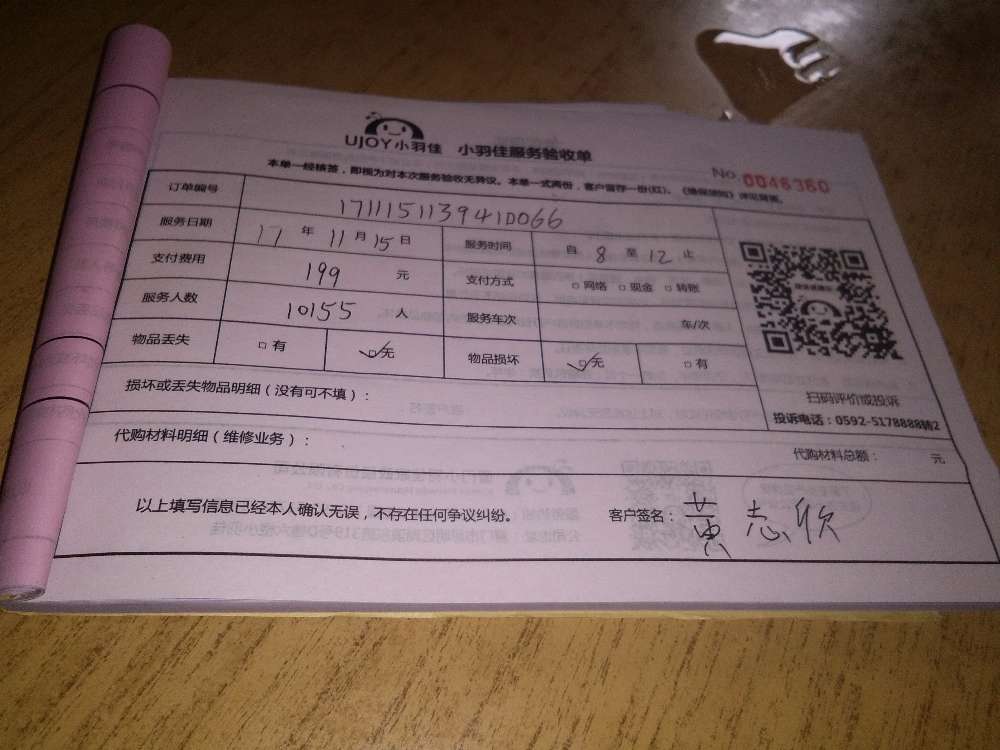 UJOY小羽佳 小羽佳服务验收单
No. 0046360
本单一经核签，即视为对本次服务验收无异议。本单一式两份，客户留存一份(红)。《维保须知》详见背面。
订单编号 171115113941D066
服务日期 17 年 11 月 15 日 服务时间 自 8 至 12 止
支付费用 199 元 支付方式 □ 网络 □ 现金 □ 转账
服务人数 10155 人 服务车次 车/次
物品丢失 □ 有 ☑ 无 物品损坏 ☑ 无 □ 有
扫码评价或投诉
投诉电话：0592-5178888转2
损坏或丢失物品明细（没有可不填）：
代购材料明细（维修业务）： 代购材料总额： 元
以上填写信息已经本人确认无误，不存在任何争议纠纷。 客户签名： 黄志欣